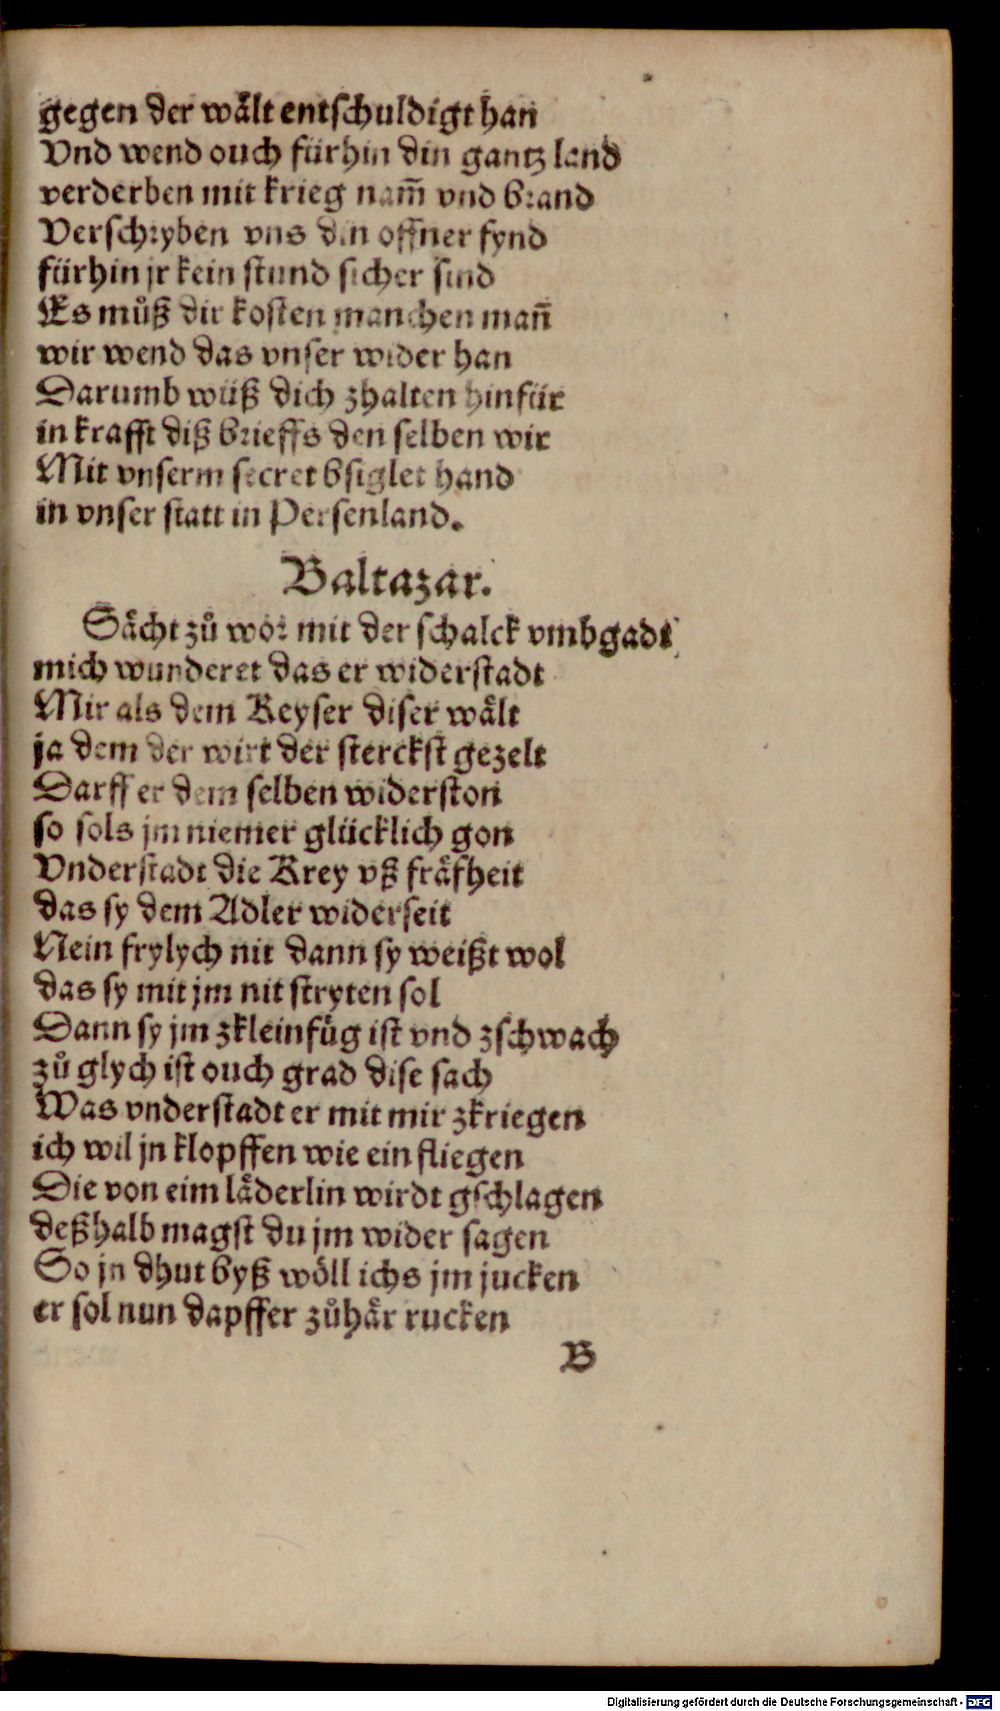 gegen der wålt entschuldigt han
Vnd wend ouch fürhin din gantz land
verderben mit krieg nam̄ vnd brand
Verschryben vns din offner fynd
fürhin jr kein stund sicher sind
Es můß dir kosten manchen man̄
wir wend das vnser wider han
Darumb wüß dich zhalten hinfür
in krafft diß brieffs den selben wir
Mit vnserm secret bsiglet hand
in vnser statt in Persenland.
Baltazar.
Såcht zů wor mit der schalck vmbgadt
mich wunderet das er widerstadt
Mir als dem Keyser diser wålt
ja dem der wirt der sterckst gezelt
Darff er dem selben widerston
so sols jm niemer glücklich gon
Vnderstadt die Krey vß fråfheit
das sy dem Adler widerseit
Nein frylych nit dann sy weißt wol
das sy mit jm nit stryten sol
Dann sy jm zkleinfüg ist vnd zschwach
zů glych ist ouch grad dise sach
Was vnderstadt er mit mir zkriegen
ich wil jn klopffen wie ein fliegen
Die von eim låderlin wirdt gschlagen
deßhalb magst du jm wider sagen
So jn dhut byß wöll ichs jm jucken
er sol nun dapffer zůhår rucken
B
Digitalisierung gefördert durch die Deutsche Forschungsgemeinschaft - DFG